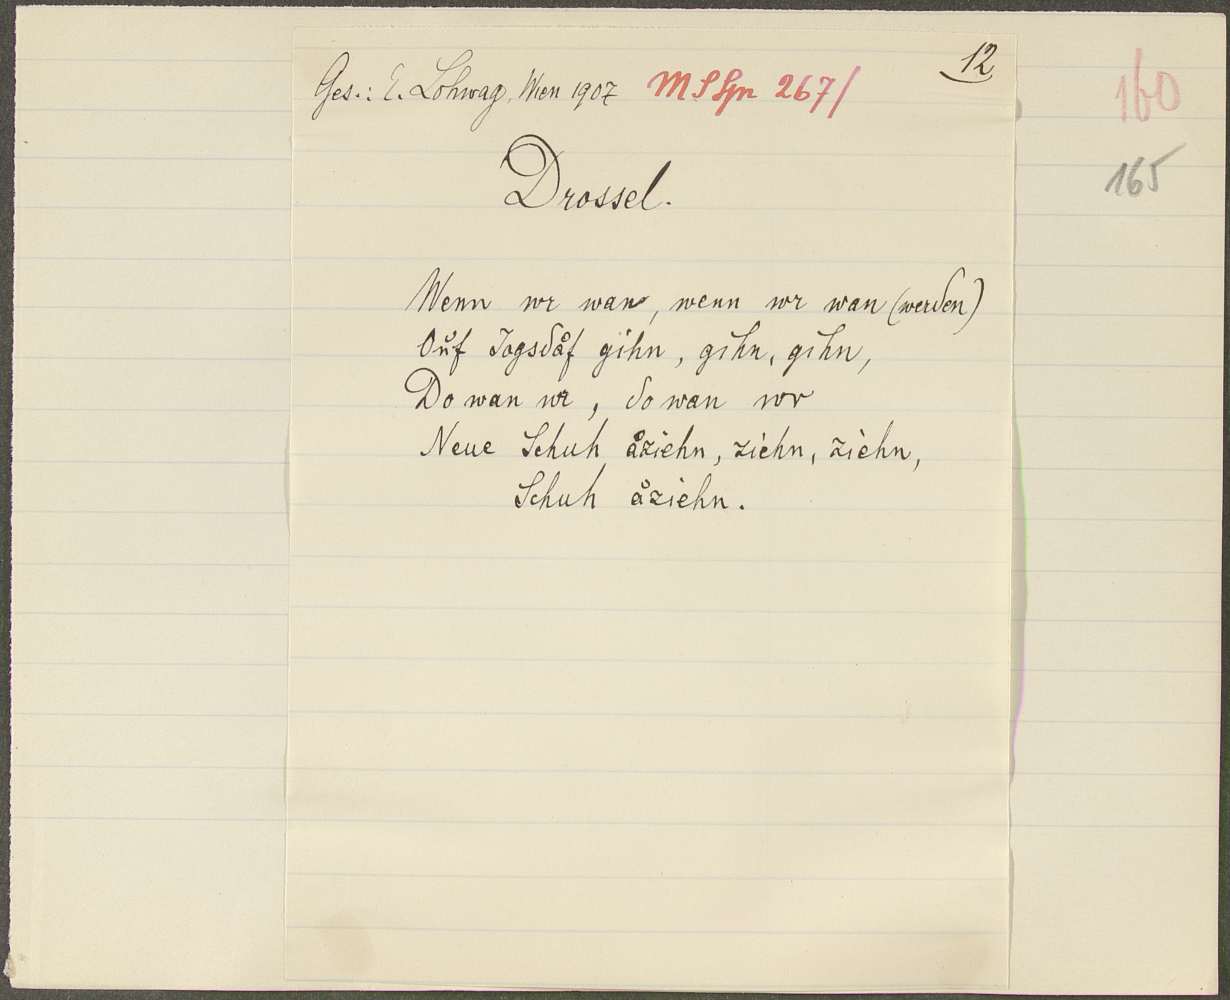 12
Ges.: E. Lohwag, Wien 1907 MSSpr 267/
160
165
Drossel.
Wenn wr wan, wenn wr wan (werden)
Ouf Jogsdåf gihn, gihn, gihn,
Do wan wr, do wan wr
Neue Schuh åziehn, ziehn, ziehn,
Schuh åziehn.